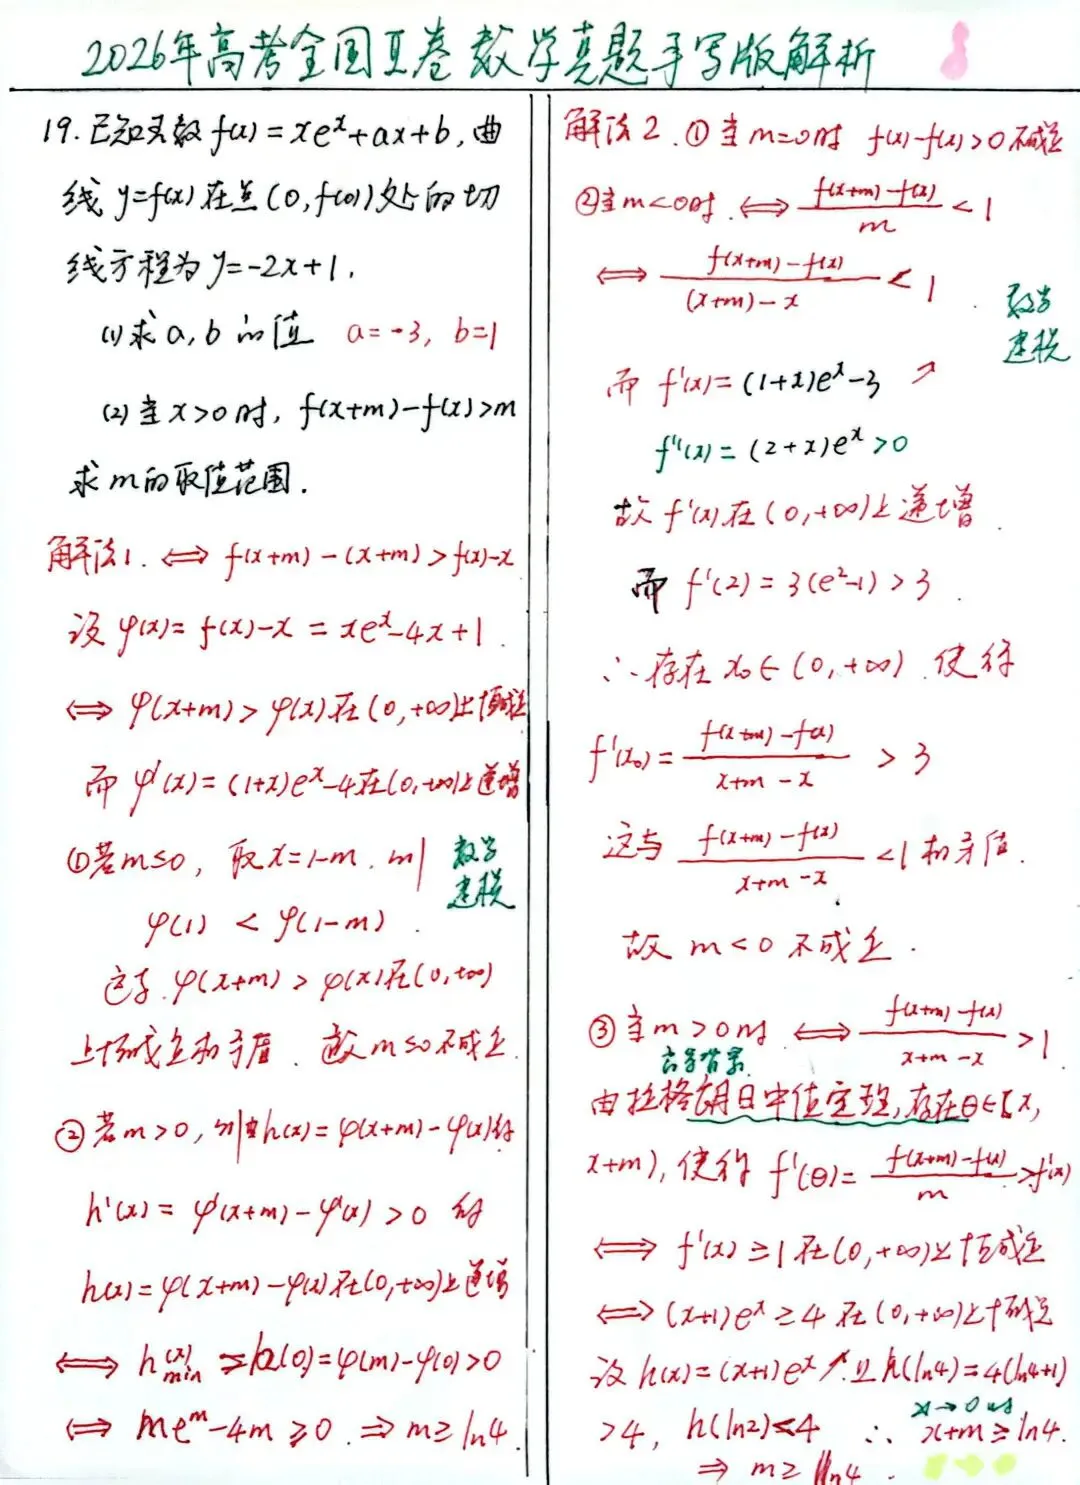 2026年高考全国Ⅱ卷数学真题手写版解析
19. 已知函数 f(x) = xeˣ+ax+b, 曲
线 y=f(x) 在点 (0, f(0)) 处的切
线方程为 y=-2x+1.
(1) 求 a, b 的值 a=-3, b=1
(2) 当 x>0 时, f(x+m)-f(x)>m
求 m 的取值范围.
解法1. ⟺ f(x+m)-(x+m)>f(x)-x
设 φ(x)= f(x)-x = xeˣ-4x+1.
⟺ φ(x+m)> φ(x) 在 (0,+∞)上恒成立
而 φ'(x)= (1+x)eˣ-4在(0,+∞)上递增
①若m≤0, 取x=1-m. 则
数学
建模
φ(1) < φ(1-m).
这与 φ(x+m) > φ(x)在(0,+∞)
上恒成立相矛盾. 故 m≤0不成立.
②若m>0, 则由h(x)=φ(x+m)-φ(x)得
h'(x)= φ'(x+m)-φ'(x)>0 得
h(x)=φ(x+m)-φ(x)在(0,+∞)上递增
⟺ h(x)min ≥h(0)=φ(m)-φ(0)>0
⟺ meᵐ-4m≥0. ⇒ m≥ln4.
解法2. ①当m=0时 f(x)-f(x)>0不成立
②当m<0时. ⟺ (f(x+m)-f(x))/m < 1
⟺ (f(x+m)-f(x))/((x+m)-x) < 1.
数学
建模
而 f'(x)= (1+x)eˣ-3 ↗
f''(x)= (2+x)eˣ>0
故 f'(x)在(0,+∞)上递增.
而 f'(2) = 3(e²-1)>3.
∴存在 x₀∈(0,+∞). 使得
f'(x₀)= (f(x+m)-f(x))/(x+m-x) > 3
这与 (f(x+m)-f(x))/(x+m-x) <1相矛盾.
故 m<0 不成立.
③当m>0时 ⟺ (f(x+m)-f(x))/(x+m-x) >1
高等背景
由拉格朗日中值定理,存在θ∈[x,
x+m), 使得 f'(θ)= (f(x+m)-f(x))/m >f'(x)
⟺ f'(x)≥1在(0,+∞)上恒成立
⟺ (x+1)eˣ≥4 在(0,+∞)上恒成立
设 h(x)=(x+1)eˣ↗.且h(ln4)=4(ln4+1)
x→0时
>4, h(ln2)<4 ∴ x+m≥ln4.
⇒ m≥ln4.